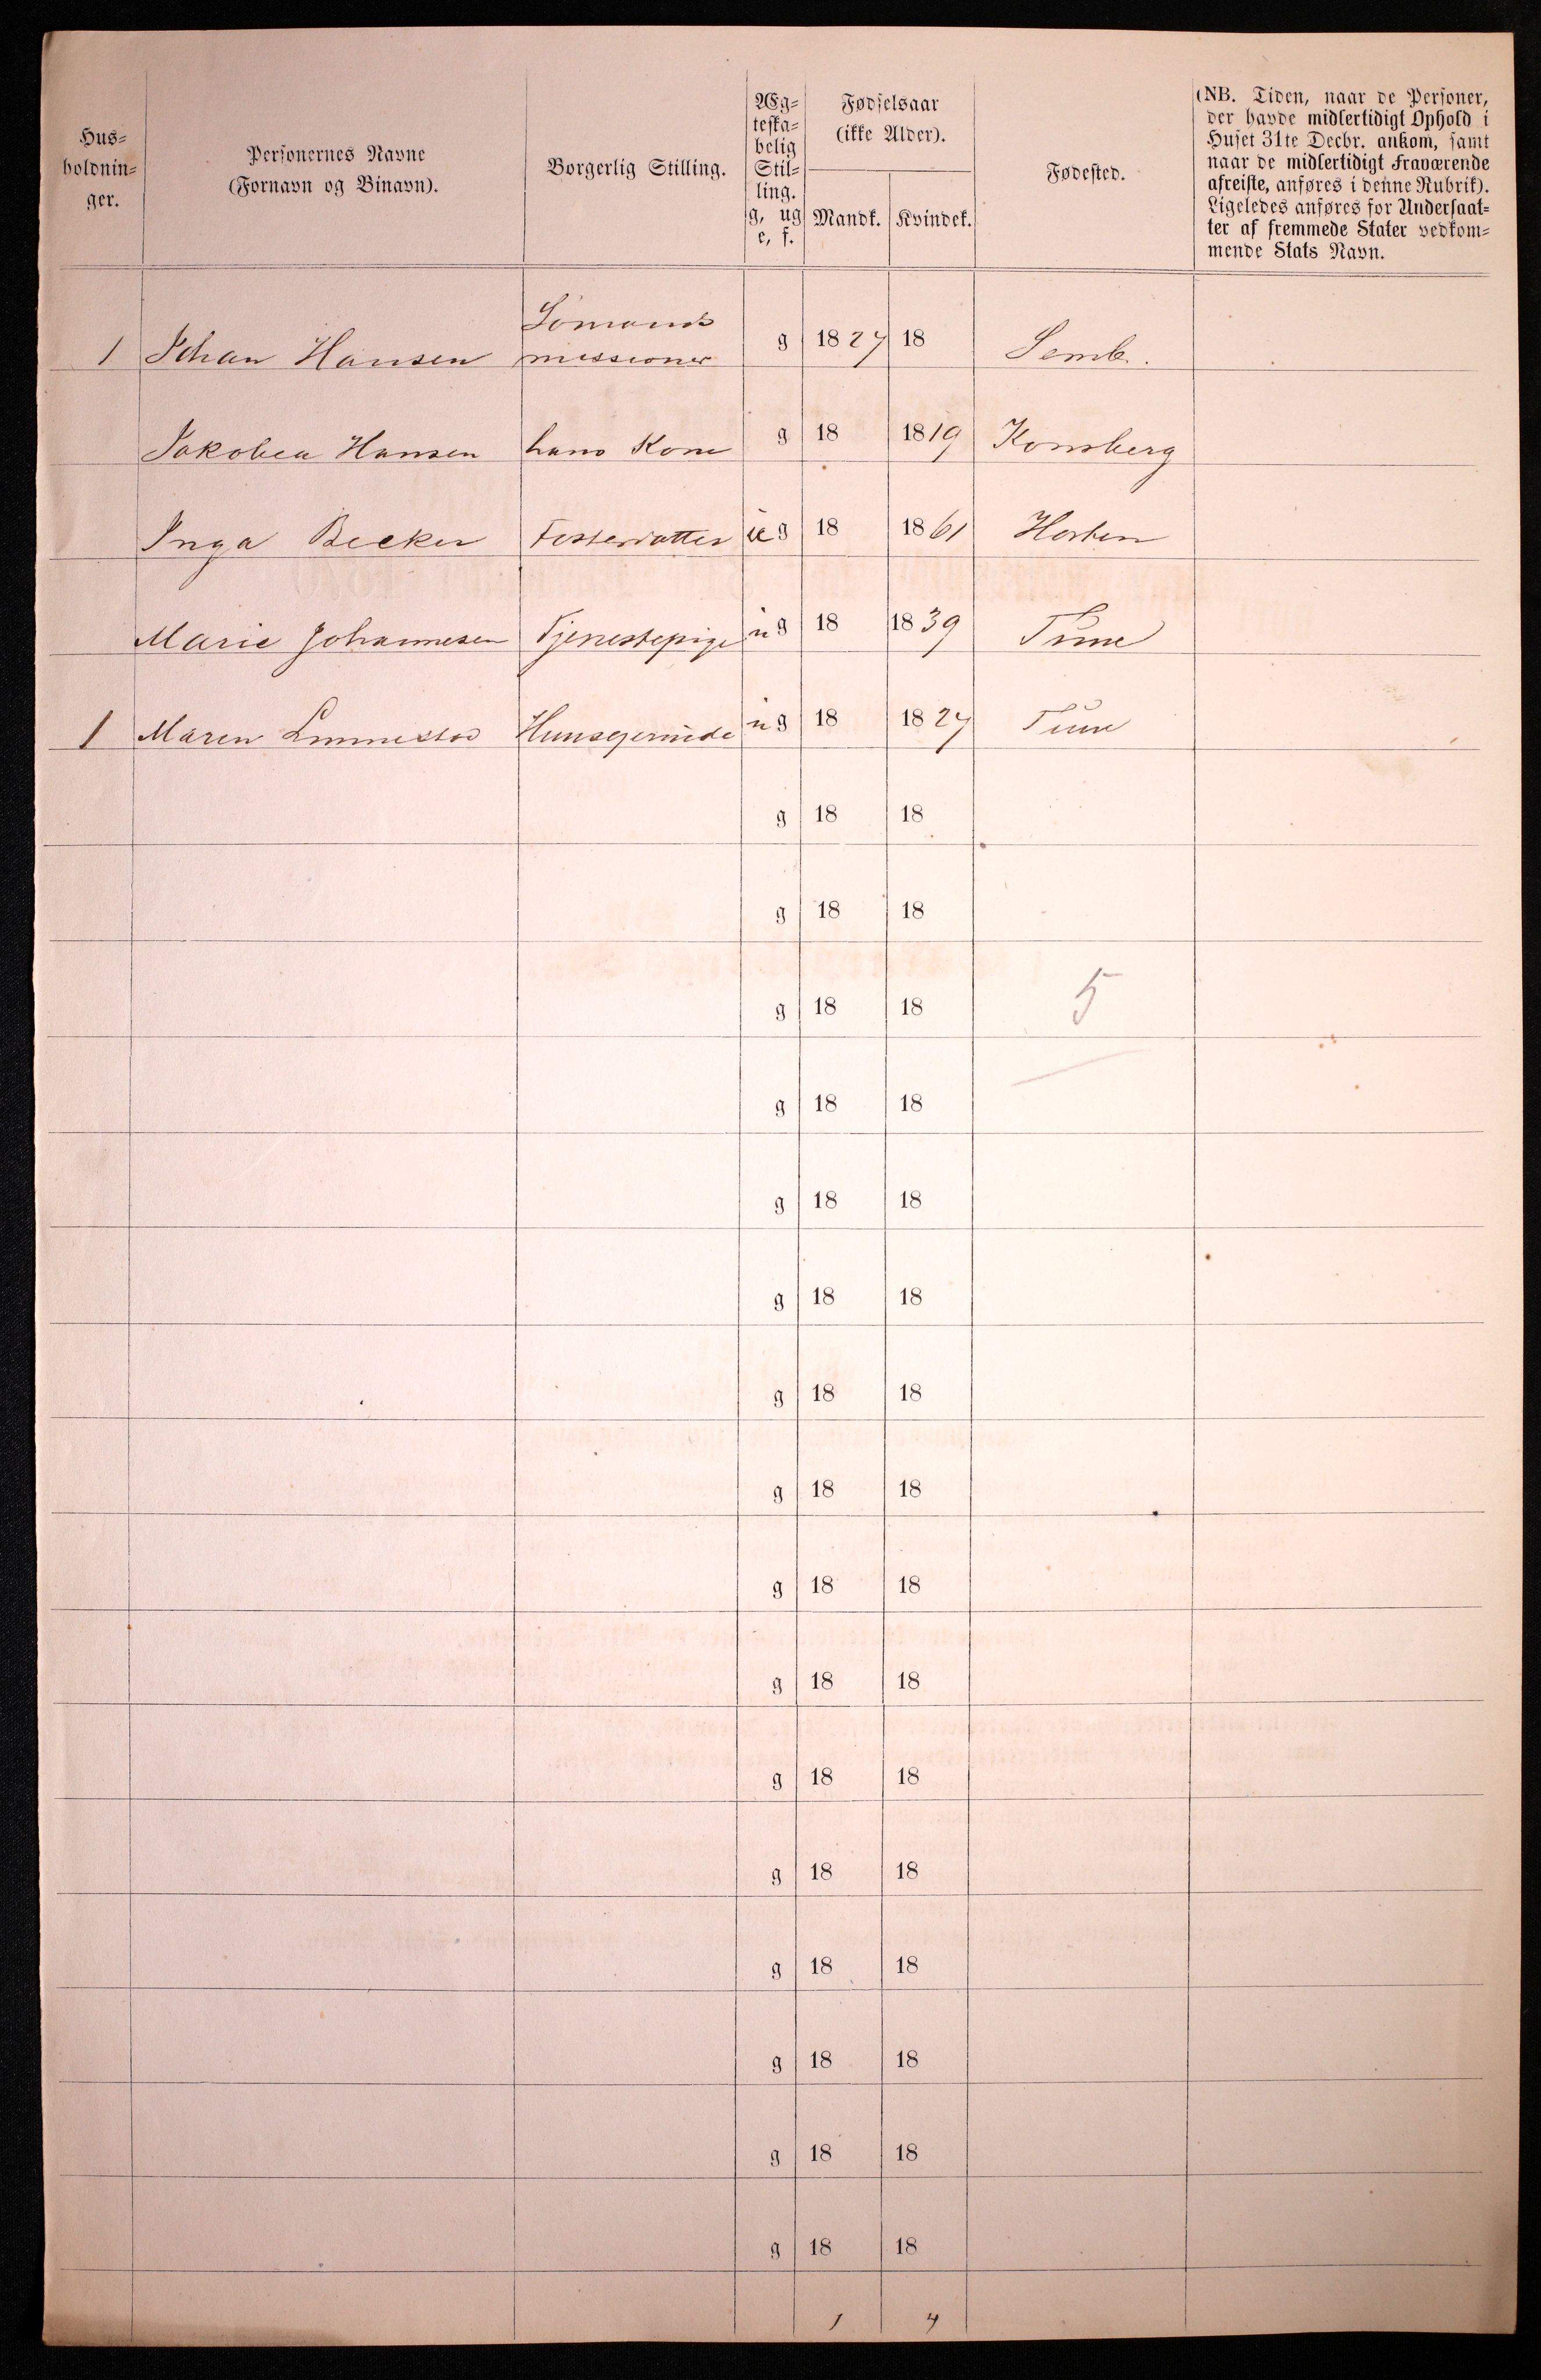 Hus=
holdnin=
ger.
Personernes Navne
(Fornavn og Binavn).
Borgerlig Stilling.
Æg=
teska=
belig
Stil=
ling.
g, ug
e, f.
Fødselsaar
(ikke Alder).
Mandk. Kvindek.
Fødested.
(NB. Tiden, naar de Personer,
der havde midlertidigt Ophold i
Huset 31te Decbr. ankom, samt
naar de midlertidigt Fraværende
afreiste, anføres i denne Rubrik).
Ligeledes anføres for Undersaat=
ter af fremmede Stater vedkom=
mende Stats Navn.
Sömands
1 Johan Hansen missioner g 1827 18 Semb.
Jakobea Hansen hans Kone g 18 1819 Konsberg
Inga Becker Fosterdatter ug 18 1861 Horten
Marie Johannesen Tjenestepige ug 18 1839 Tune
1 Maren Huusejerinde ug 18 1827 Tune
g 18 18
g 18 18
g 18 18 5
g 18 18
g 18 18
g 18 18
g 18 18
g 18 18
g 18 18
g 18 18
g 18 18
g 18 18
g 18 18
g 18 18
g 18 18
g 18 18
1 4